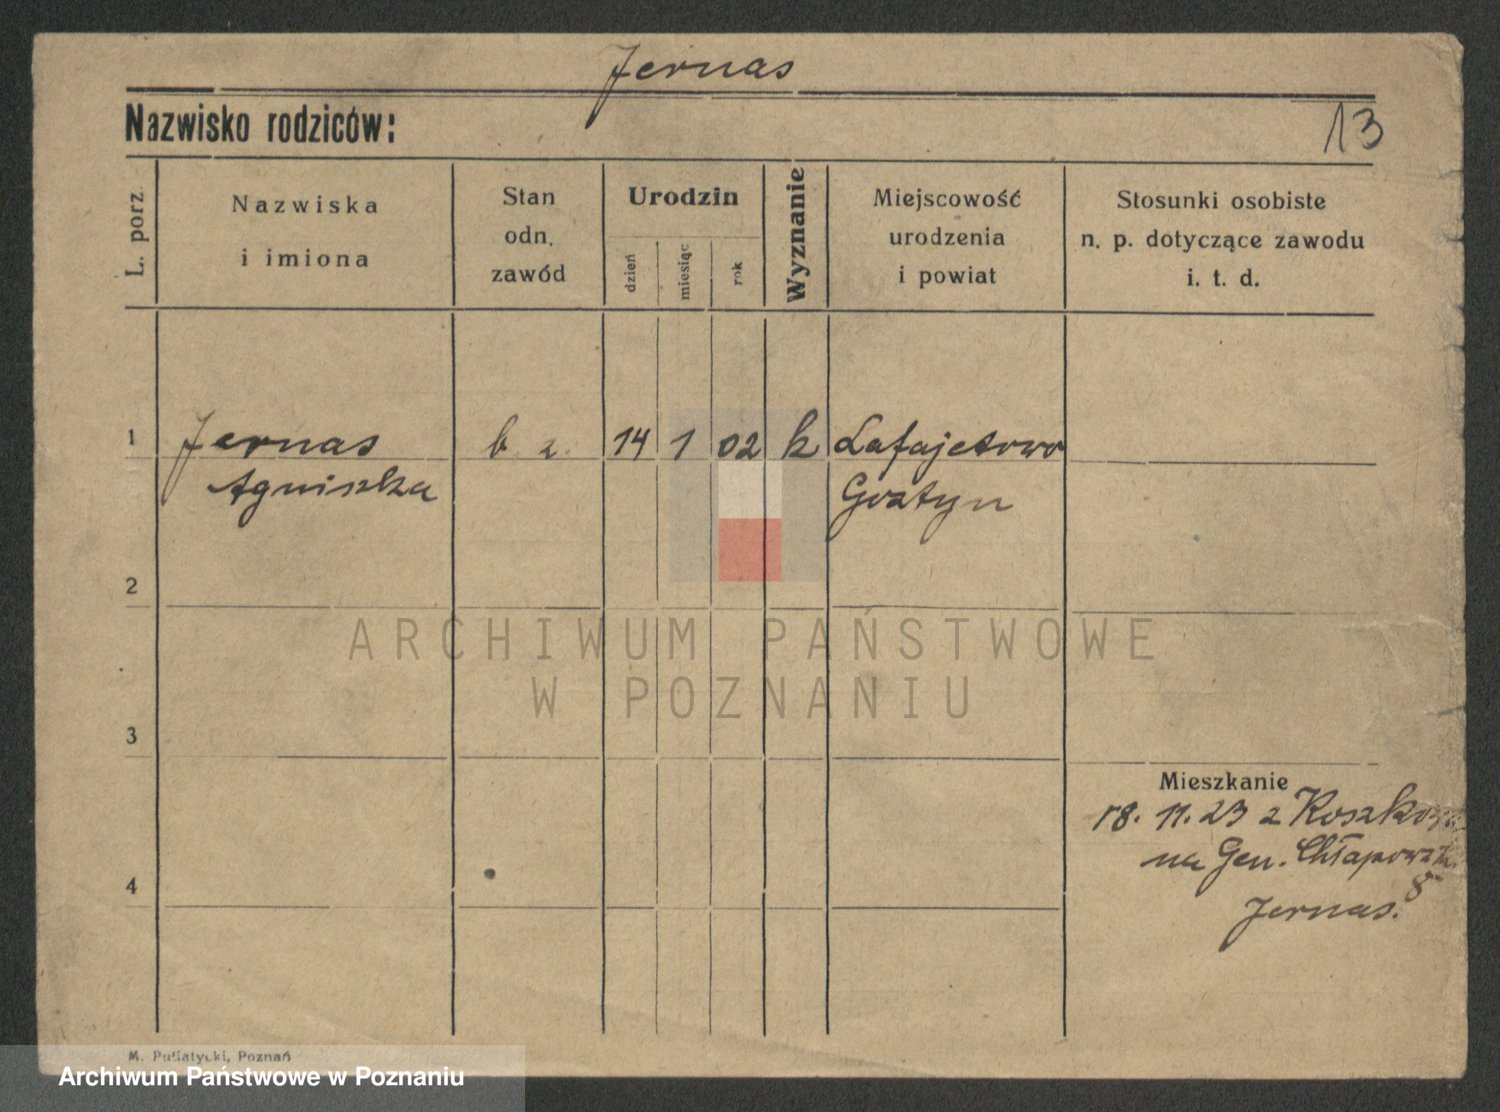 Jernas
Nazwisko rodziców:
13
L. porz
Nazwiska
i imiona
Stan
odn.
zawód
Urodzin
dzień
miesiąc
rok
Wyznanie
Miejscowość
urodzenia
i powiat
Stosunki osobiste
n. p. dotyczące zawodu
i. t. d.
1 Jernas b z 14 1 02 k Lafajetowo
Agniszka Gostyn
2
ARCHIWUM PAŃSTWOWE
W POZNANIU
3
Mieszkanie
18. 11. 23 z
na Gen.
8
Jernas.
4
M. Putiatycki, Poznań
Archiwum Państwowe w Poznaniu